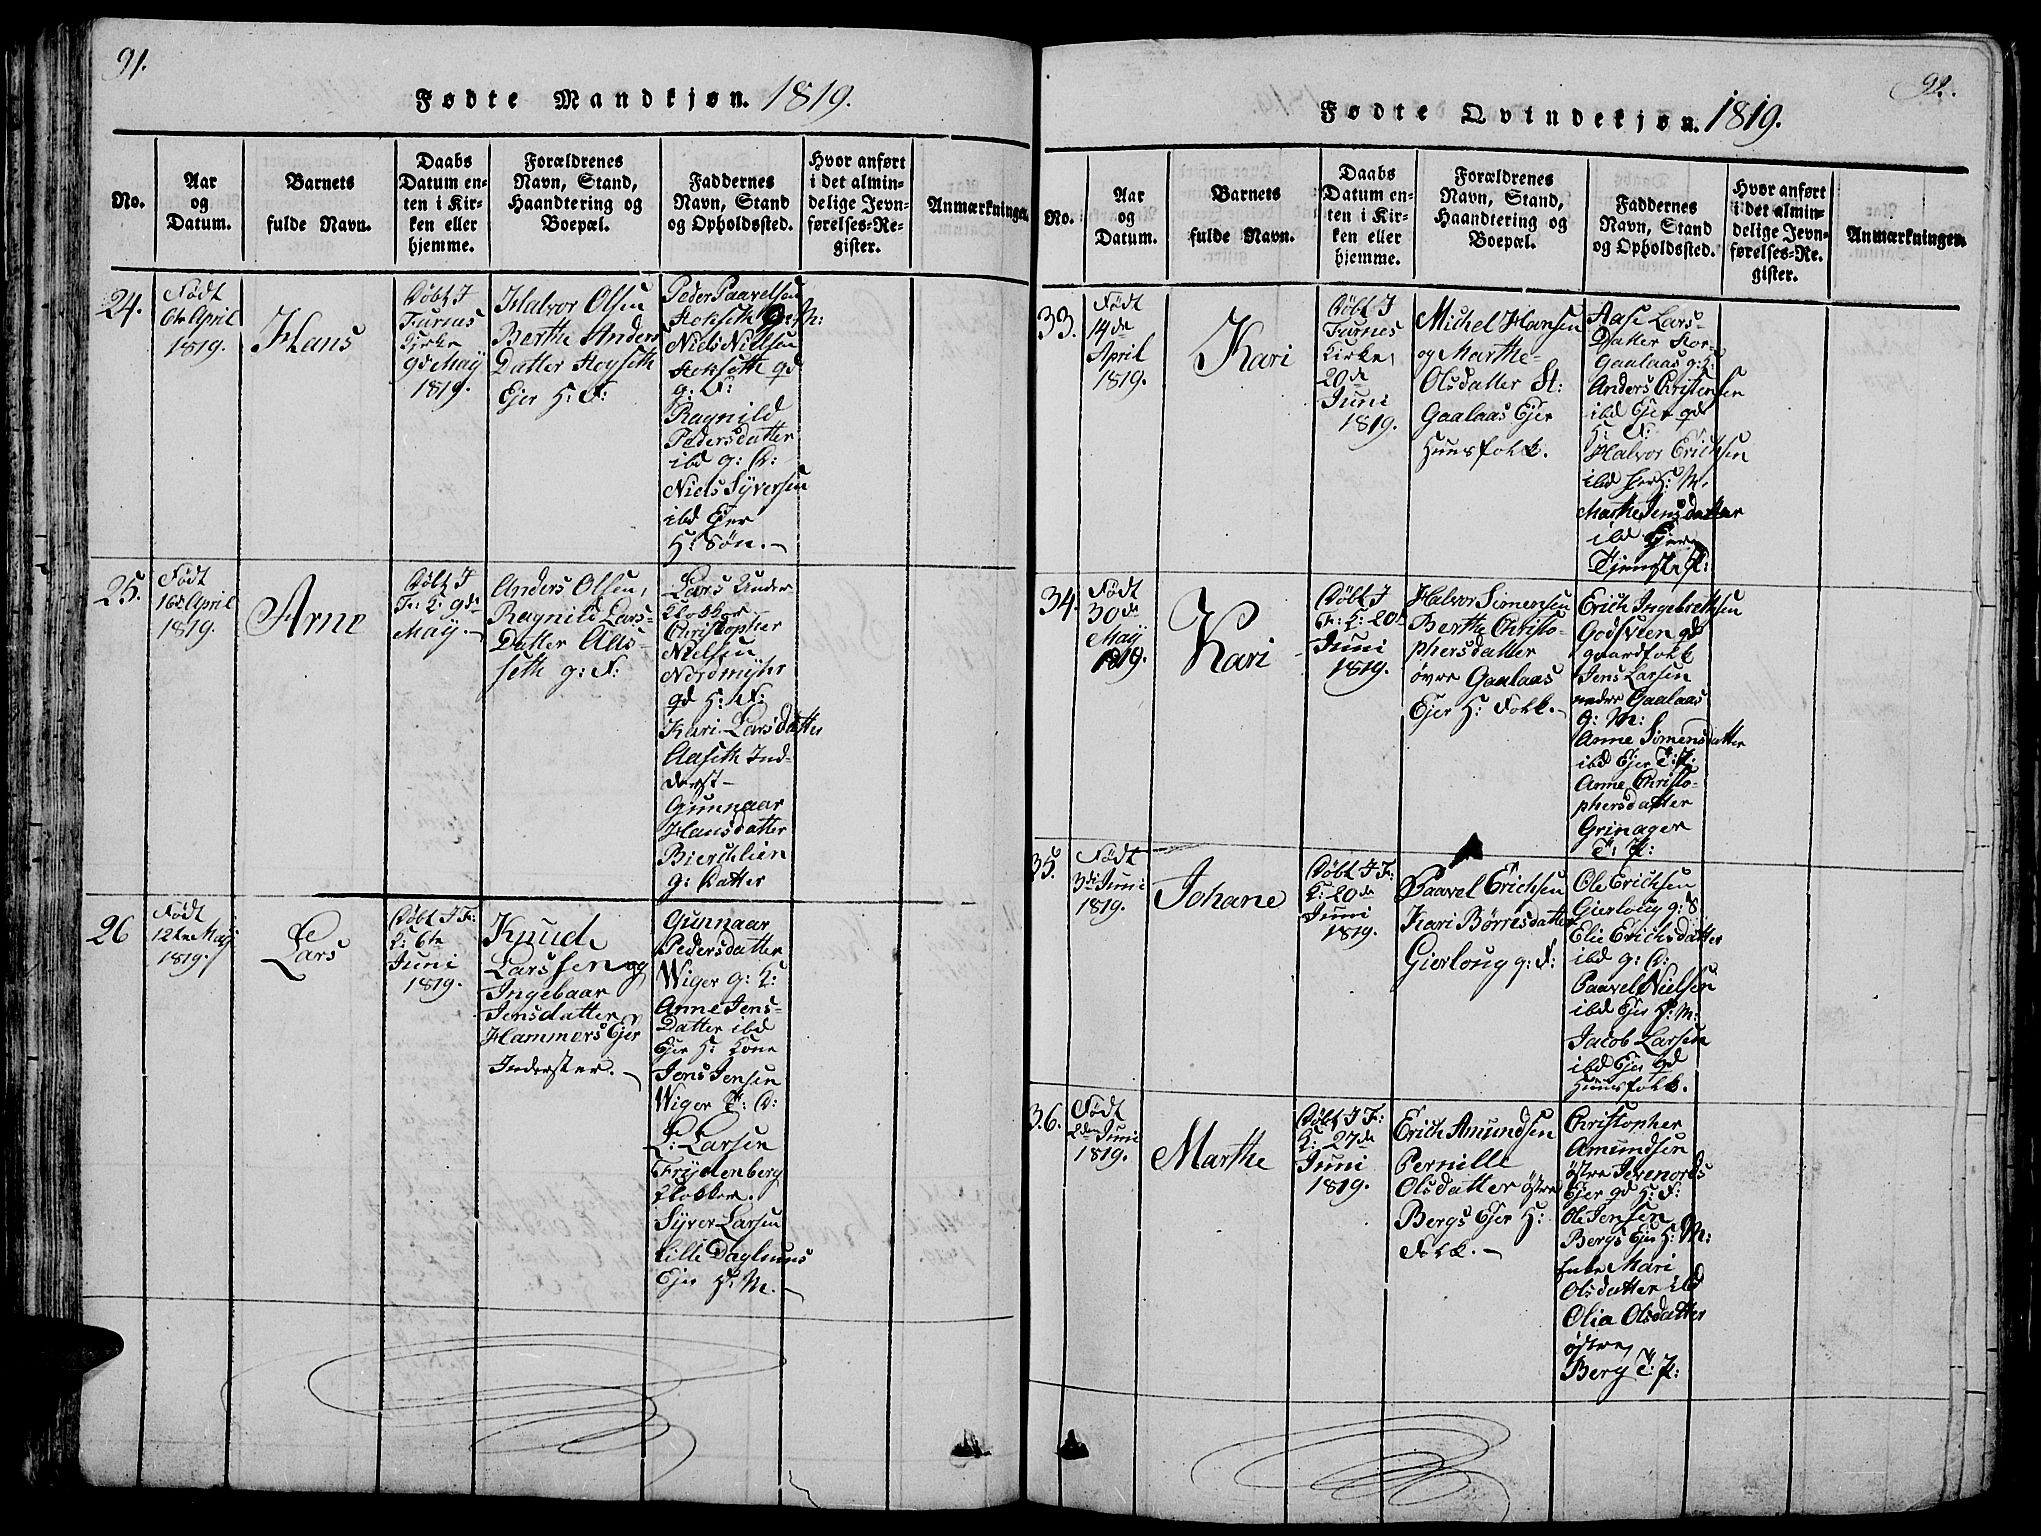 91.
Fødte Mandkjøn. 1819.
No.
Aar
og
Datum.
Barnets
fulde Navn.
Daabs
Datum en-
ten i Kir-
ken eller
hjemme.
Forældrenes
Navn, Stand,
Haandtering og
Boepæl.
Faddernes
Navn, Stand
og Opholdssted.
Hvor anført
i det almin-
delige Jevn-
førelses-Re-
gister.
Anmærkninger.
24.
Født
6te April
1819.
Hans
Døbt I
Furnes
Kirke
9de May
1819.
Halvor Olsen
Berthe Anders
Datter Hoyseth
Ejer H: F:
Peder Paavelsen
Hokseth G: M:
Niels Nielsen
Hokseth gd
g: F:
Ragnild
Pedersdatter
ibd g: D:
Niels Syversen
ibd Ejer
H: Søn.
25.
Født
16de April
1819.
Arne
Døbt I
F: K: 9de
May
Anders Olsen,
Ragnild Lars-
Datter Aas-
seth g: F:
Lars Under
Klokker
Christopher
Nielsen
Nordmyhr
gd H: F:
Kari Larsdatter
Aaseth Ind-
derst
Gunnaar
Hansdatter
Bierchlien
g: Datter
26
Født
12te May
1819.
Lars
Døbt I F:
K: 6te
Juni
1819.
Knud
Larssen og
Ingebaar
Jensdatter
Hammers Ejer
Inderster.
Gunnaar
Pedersdatter
Wiger g: K:
Anne Jens-
Datter ibd
Ejer H: Kone
Jens Jensen
Wiger T: D:
L: Larsen
Frydenberg
Klokker.
Syver Larsen
Lille Daglunus
Ejer H: M.
92.
Fødte Qvindekjøn. 1819.
No.
Aar
og
Datum.
Barnets
fulde Navn.
Daabs
Datum en-
ten i Kir-
ken eller
hjemme.
Forældrenes
Navn, Stand,
Haandtering og
Boepæl.
Faddernes
Navn, Stand
og Opholdssted.
Hvor anført
i det almin-
delige Jevn-
førelses-Re-
gister.
Anmærkninger.
33.
Født
14de
April
1819.
Kari
Døbt I
Furnes
Kirke
20de
Juni
1819.
Michel Hansen
og Marthe
Olsdatter St:
Gaalaas Ejer
Huusfolk.
Aase Lars-
Datter Stor-
Gaalaas g: K:
Anders Christensen
ibd Ejer gd
H: F:
Halvor Erichsen
ibd Ejer H: M.
Marthe Jensdatter
ibd Ejer
Tjeneste P:
34.
Født
30de
May
1819.
Kari
Døbt I
F: K: 20de
Juni
1819.
Halvor Simensen
Berthe Christo-
phersdatter
øvre Gaalaas
Ejer H: Folk.
Erich Ingebrethsen
Godsveen gd
gaardfolk
Jens Larsen
nedre Gaalaas
G: M:
Anne Simensdatter
ibd Ejer T: P:
Anne Christo-
phersdatter
Grinager
T: P:
35.
Født
3de Juni
1819.
Johane
Døbt I F:
K: 20de
Juni
1819.
Paavel Erichsen
Kari Børresdatter
Gierloug g: F:
Ole Erichsen
Gierloug g: S
Elie Erichsdatter
ibd g: D:
Paavel Nielsen
ibd Ejer H: M:
Jacob Larsen
ibd Ejer gd
Huusfolk.
36.
Født
2den Juni
1819.
Marthe
Døbt I F:
K: 27de
Juni
1819.
Erich Amundsen
Pernille
Olsdatter østre
Bergs Ejer H:
Folk.
Christopher
Amundsen
østre Jevenords
Ejer gd H: F:
Ole Jensen
Bergs Ejer H: M:
Enke Mari
Olsdatter ibd
Olia Olsdatter
østre
Berg T: P: